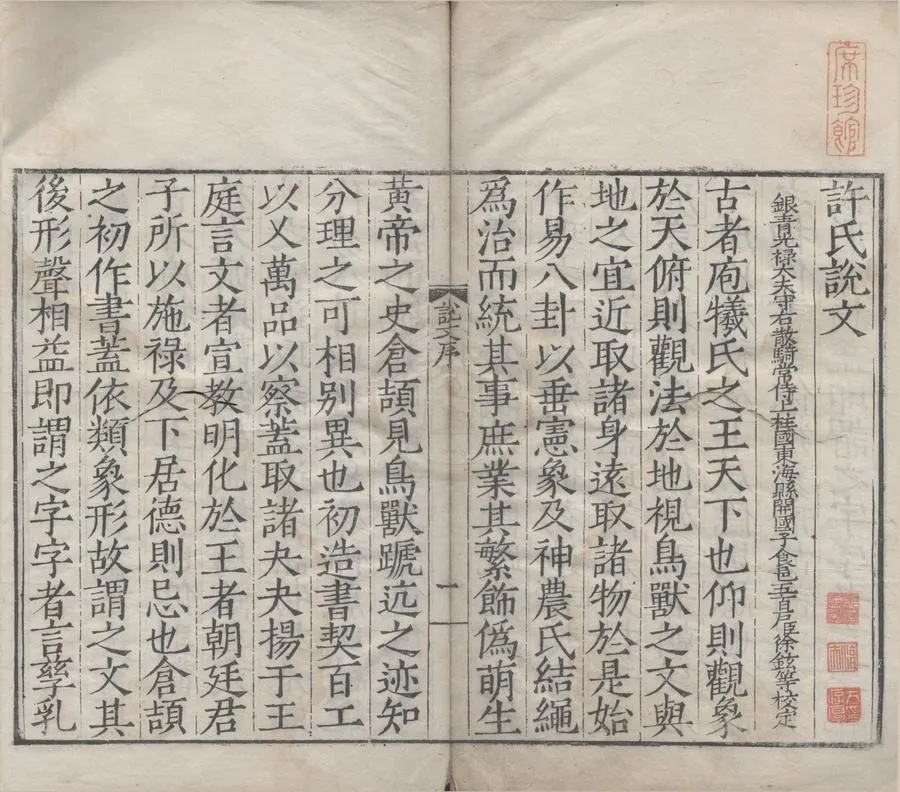 席珍館
許氏說文
銀青光祿大夫守右散騎常侍上柱國東海縣開國子食邑五百戶臣徐鉉等校定
古者庖犧氏之王天下也仰則觀象
於天俯則觀法於地視鳥獸之文與
地之宜近取諸身遠取諸物於是始
作易八卦以垂憲象及神農氏結繩
爲治而統其事庶業其繁飾僞萌生
說文序
一
黃帝之史倉頡見鳥獸蹏迒之迹知
分理之可相别異也初造書契百工
以乂萬品以察蓋取諸夬夬揚于王
庭言文者宣教明化於王者朝廷君
子所以施祿及下居德則忌也倉頡
之初作書蓋依類象形故謂之文其
後形聲相益即謂之字字者言孳乳